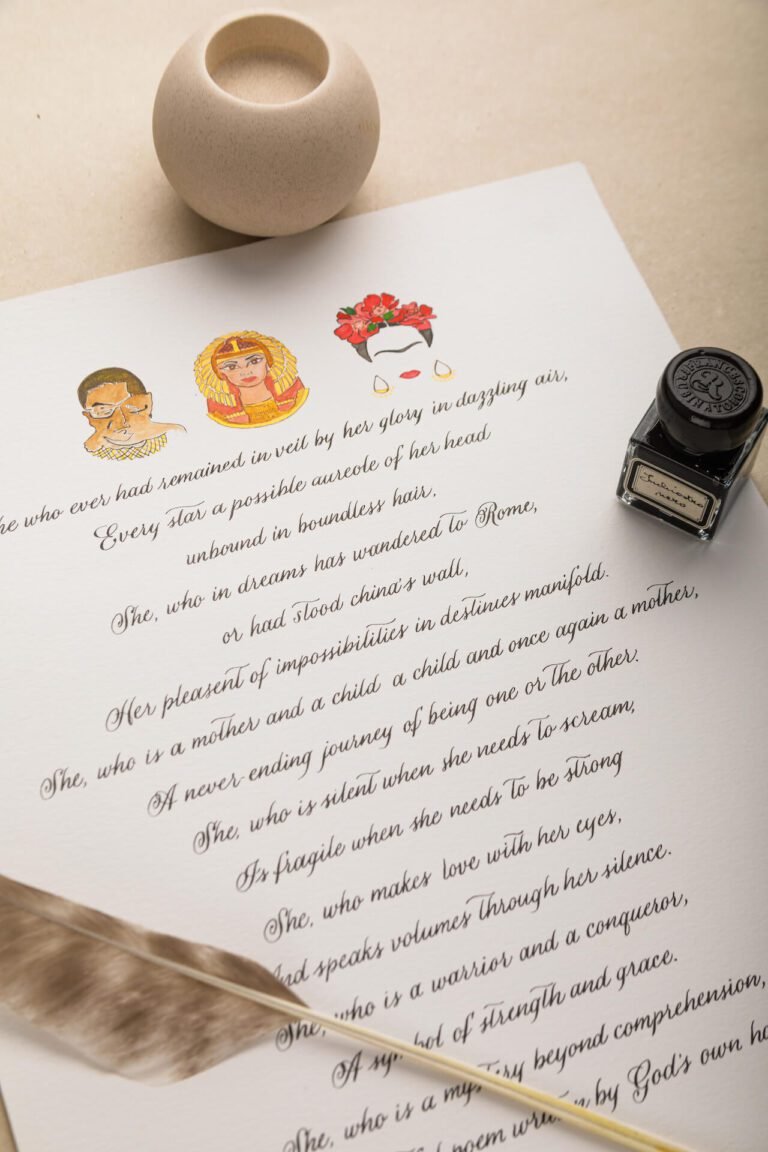 he who ever had remained in veil by her glory in dazzling air,
Every star a possible aureole of her head
unbound in boundless hair,
She, who in dreams has wandered to Rome,
or had stood china's wall,
Her pleasent of impossibilities in destinies manifold.
She, who is a mother and a child a child and once again a mother,
A never-ending journey of being one or the other.
She, who is silent when she needs to scream,
Is fragile when she needs to be strong
She, who makes love with her eyes,
And speaks volumes through her silence.
She, who is a warrior and a conqueror,
A symbol of strength and grace.
She, who is a mystery beyond comprehension,
poem written by God's own
Inchiostro
nero